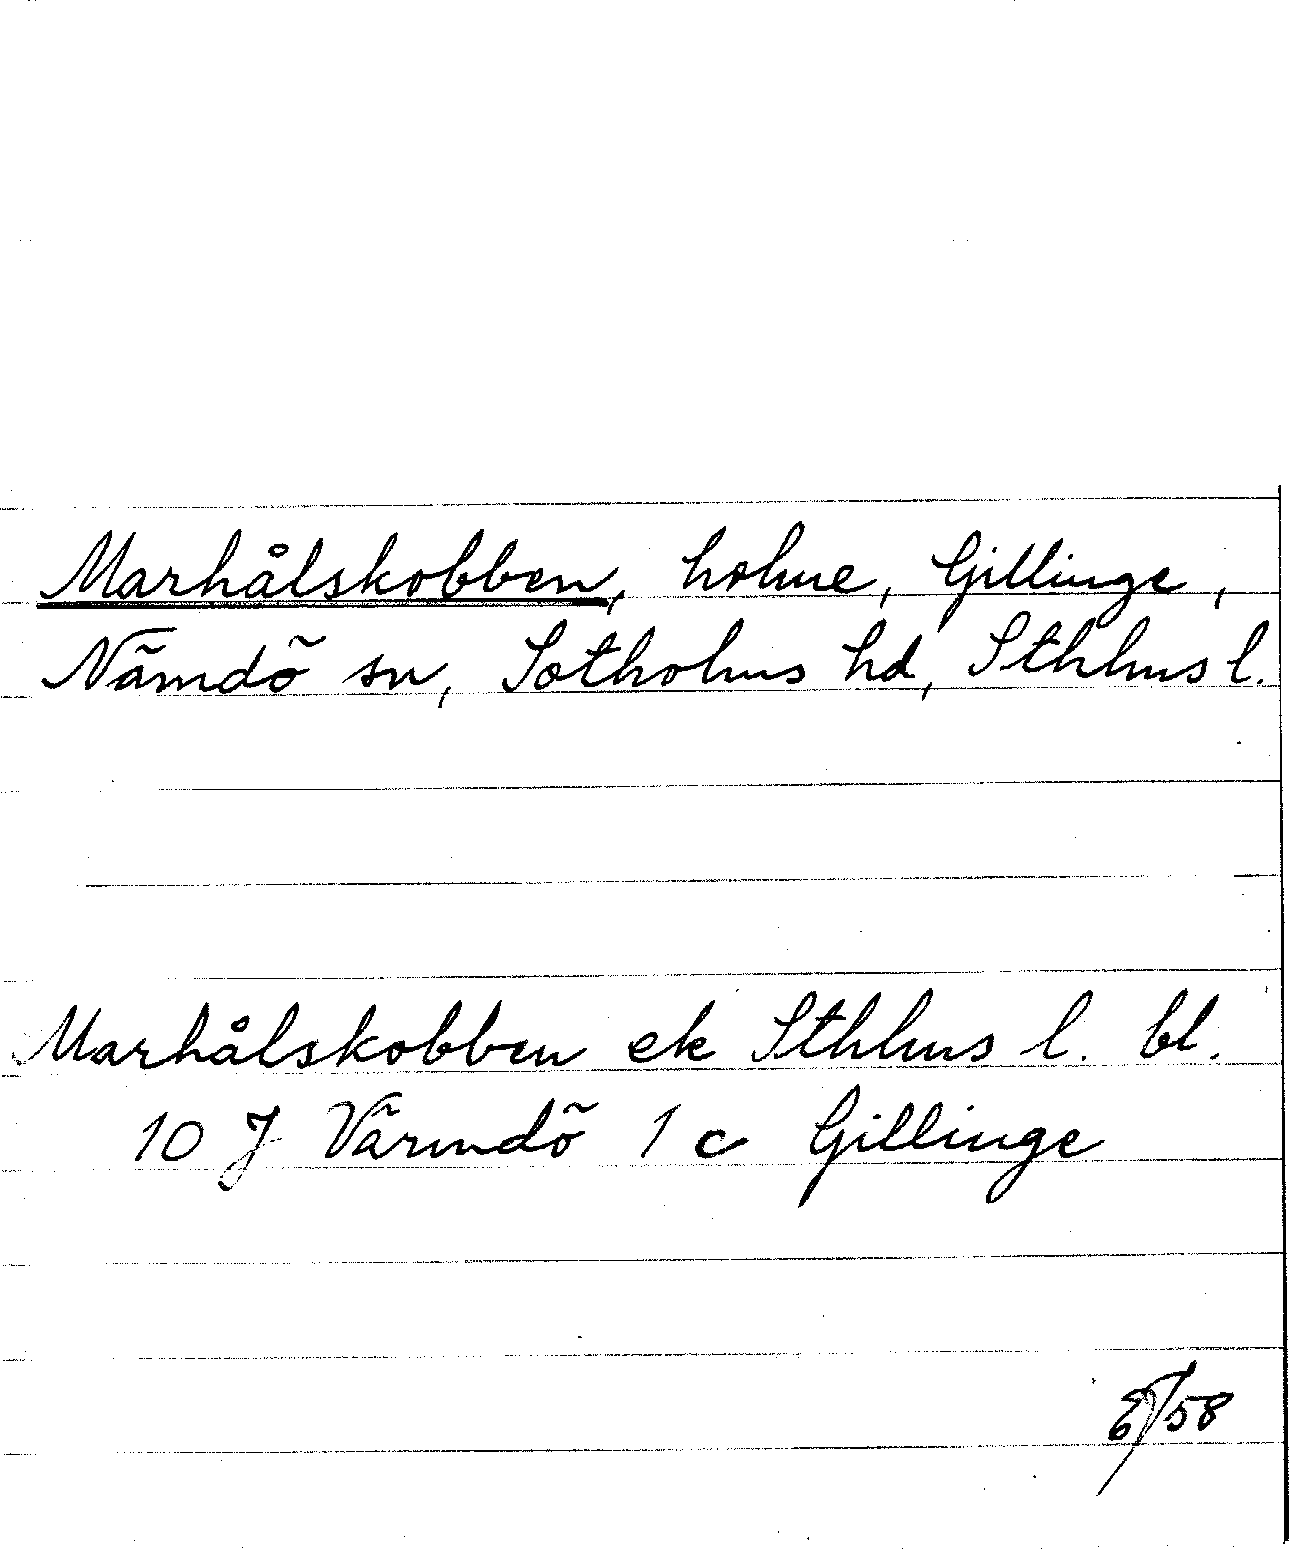 Marhålskobben, holme, Gillinge,
Nämdö sn, Sotholms hd, Sthlms l.
Marhålskobben ek Sthlms l. bl.
10 J Värmdö 1 c Gillinge
/58